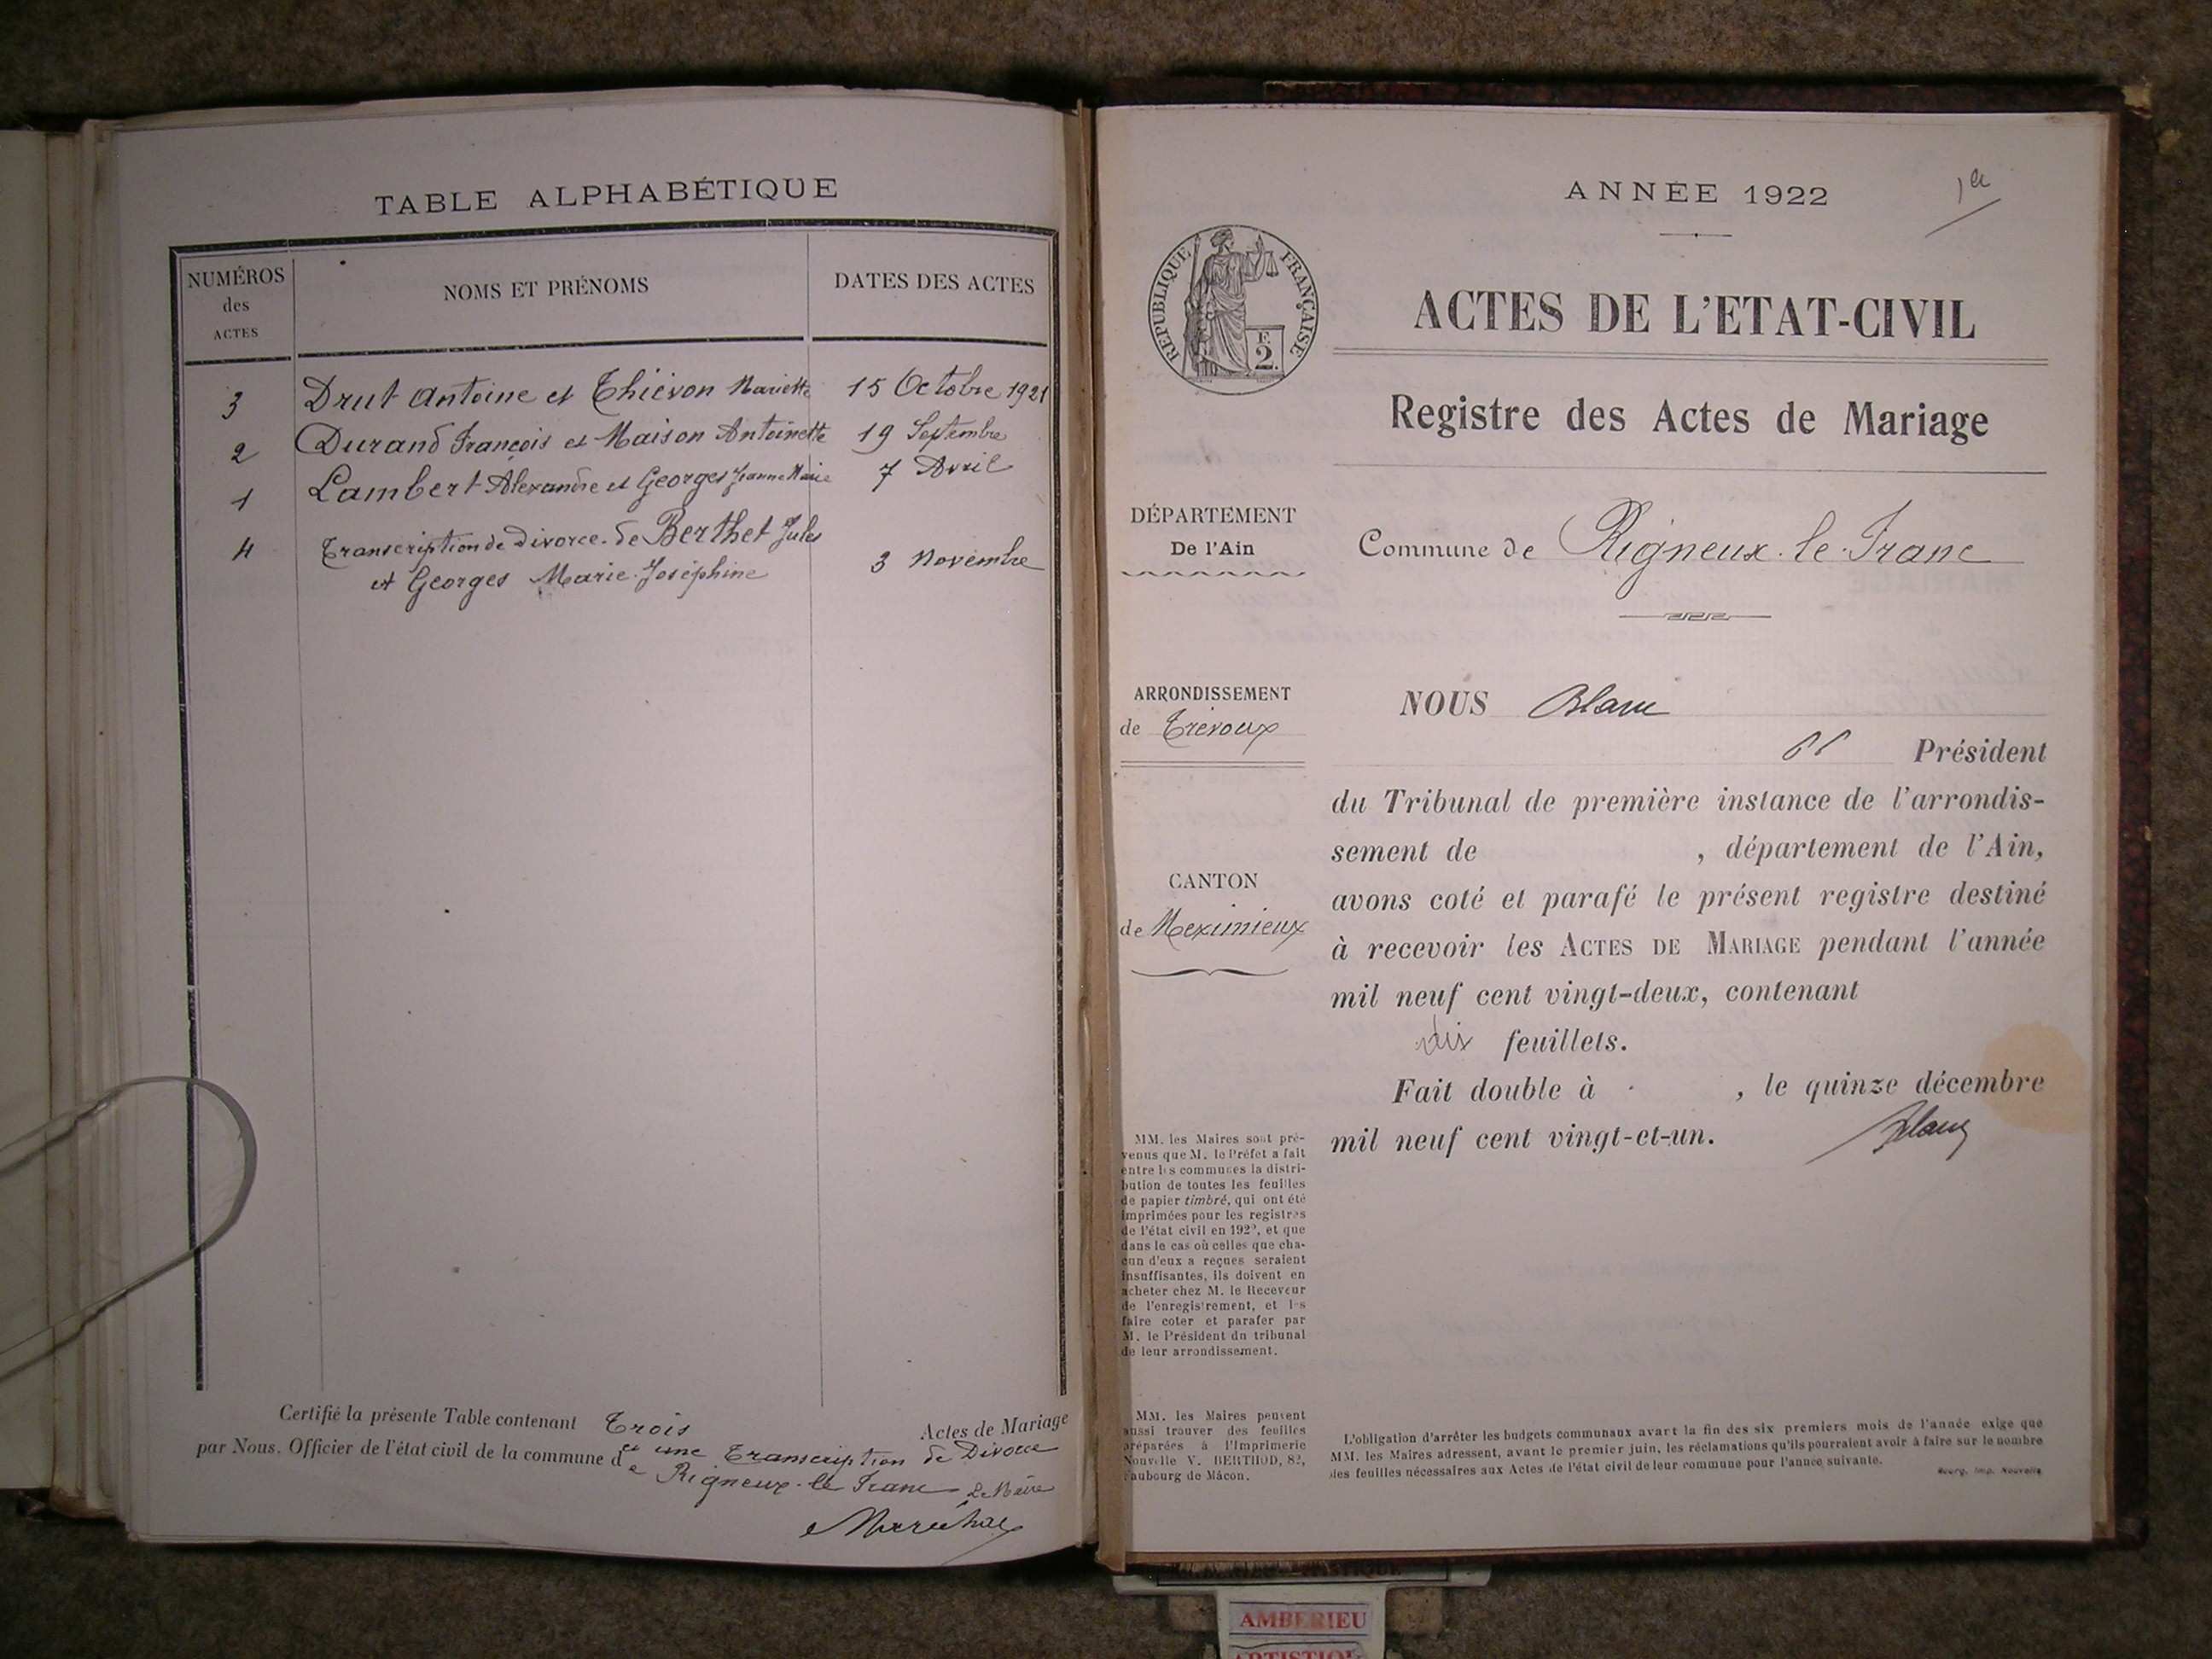 TABLE ALPHABÉTIQUE
NUMÉROS
des
ACTES
NOMS ET PRÉNOMS
DATES DES ACTES
3 Drut Antoine et Thiévon Mariette 15 Octobre 1921
2 Durand François et Maison Antoinette 19 Septembre
1 Lambert Alexandre et Georges Jeanne Marie 7 Avril
4 Transcription de Divorce de Berthet Jules
et Georges Marie Joséphine 3 Novembre
Certifié la présente Table contenant Trois Actes de Mariage
et une Transcription de Divorce
par Nous, Officier de l'état civil de la commune de
Rigneux-le-Franc Le Maire
Maréchal
ANNÉE 1922
1er
RÉPUBLIQUE FRANÇAISE
F.
2.
ACTES DE L'ETAT-CIVIL
Registre des Actes de Mariage
DÉPARTEMENT
De l'Ain
Commune de Rigneux-le-Franc
ARRONDISSEMENT
de Trévoux
CANTON
de Meximieux
NOUS Blanc
Président
du Tribunal de première instance de l'arrondis-
sement de , département de l'Ain,
avons coté et parafé le présent registre destiné
à recevoir les ACTES DE MARIAGE pendant l'année
mil neuf cent vingt-deux, contenant
dix feuillets.
Fait double à , le quinze décembre
mil neuf cent vingt-et-un.
Blanc
MM. les Maires sont pré-
venus que M. le Préfet a fait
entre les communes la distri-
bution de toutes les feuilles
de papier timbré, qui ont été
imprimées pour les registres
de l'état civil en 1922, et que
dans le cas où celles que cha-
cun d'eux a reçues seraient
insuffisantes, ils doivent en
acheter chez M. le Receveur
de l'enregistrement, et les
faire coter et parafer par
M. le Président du tribunal
de leur arrondissement.
MM. les Maires peuvent
aussi trouver des feuilles
préparées à l'Imprimerie
Nouvelle V. BERTHOD, 82,
faubourg de Mâcon.
L'obligation d'arrêter les budgets communaux avant la fin des six premiers mois de l'année exige que
MM. les Maires adressent, avant le premier juin, les réclamations qu'ils pourraient avoir à faire sur le nombre
des feuilles nécessaires aux Actes de l'état civil de leur commune pour l'année suivante.
Bourg, Imp. Nouvelle
AMBERIEU